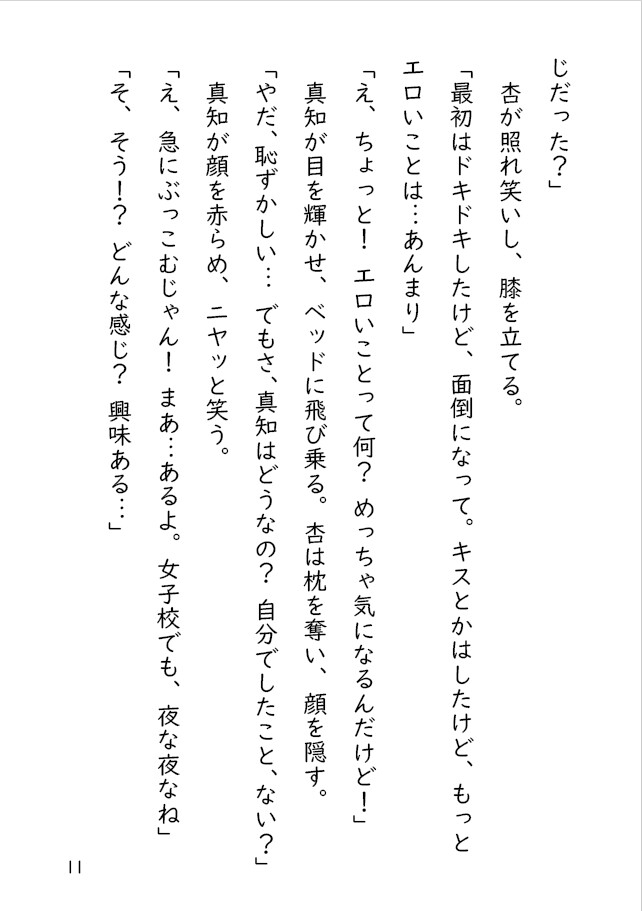 じだった？」
杏が照れ笑いし、膝を立てる。
「最初はドキドキしたけど、面倒になって。キスとかはしたけど、もっと
エロいことは…あんまり」
「え、ちょっと！ エロいことって何？ めっちゃ気になるんだけど！」
真知が目を輝かせ、ベッドに飛び乗る。杏は枕を奪い、顔を隠す。
「やだ、恥ずかしい… でもさ、真知はどうなの？ 自分でしたこと、ない？」
真知が顔を赤らめ、ニヤッと笑う。
「え、急にぶっこむじゃん！ まあ…あるよ。女子校でも、夜な夜なね」
「そ、そう！？ どんな感じ？ 興味ある…」
11